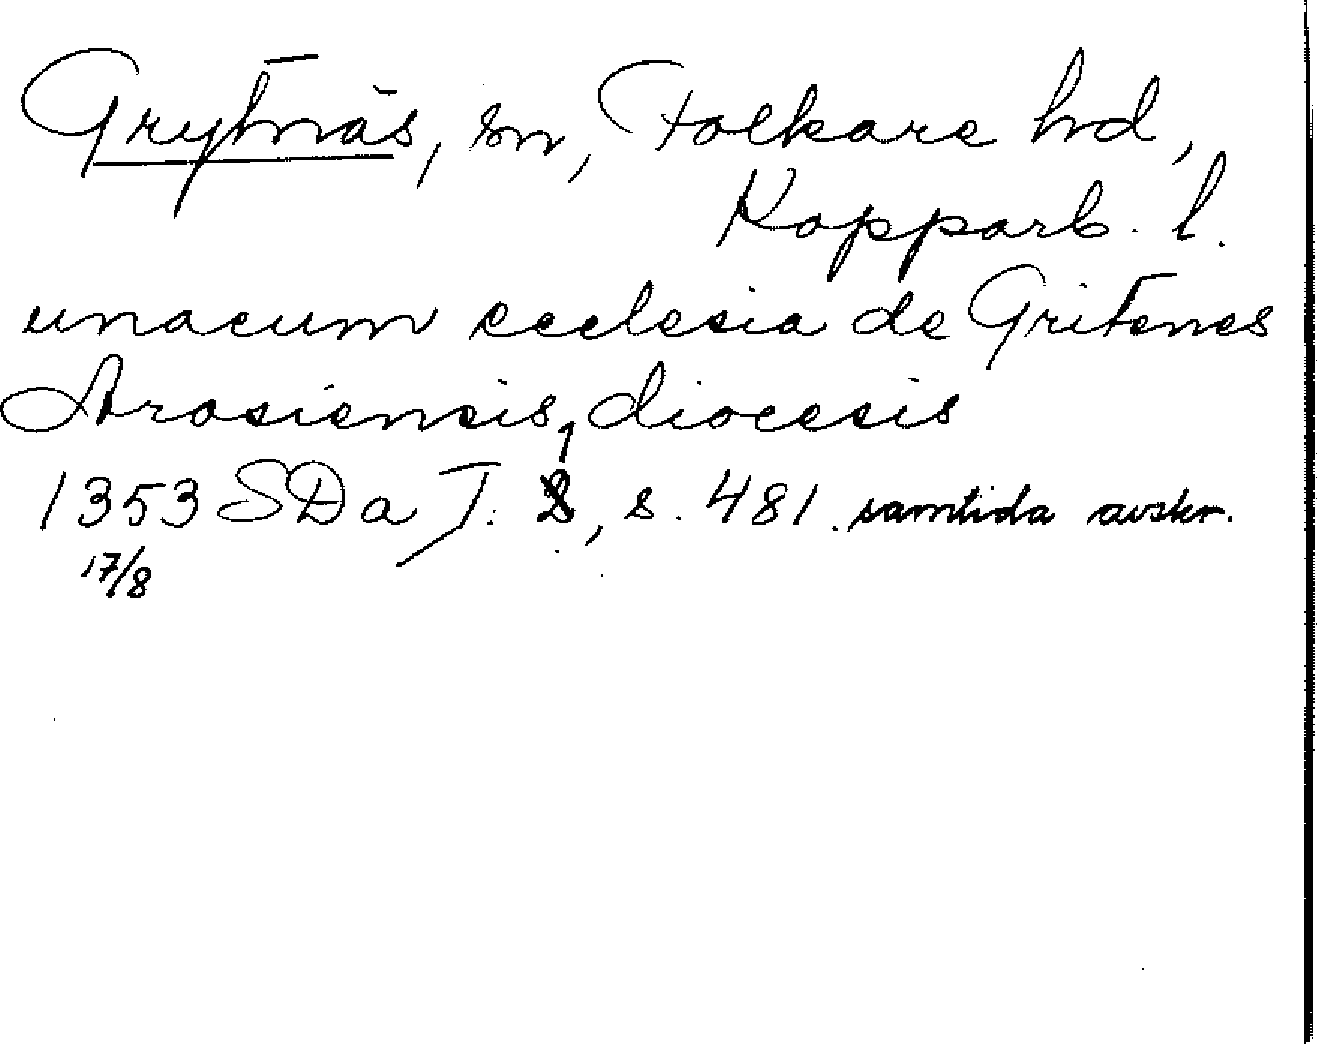 Grytnäs, sn, Folkare hd,
Kopparb. l.
unacum ecclesia de Gritenes
Arosiensis diocesis
1353 SDa J. 1, s. 481. samtida avskr.
17/8